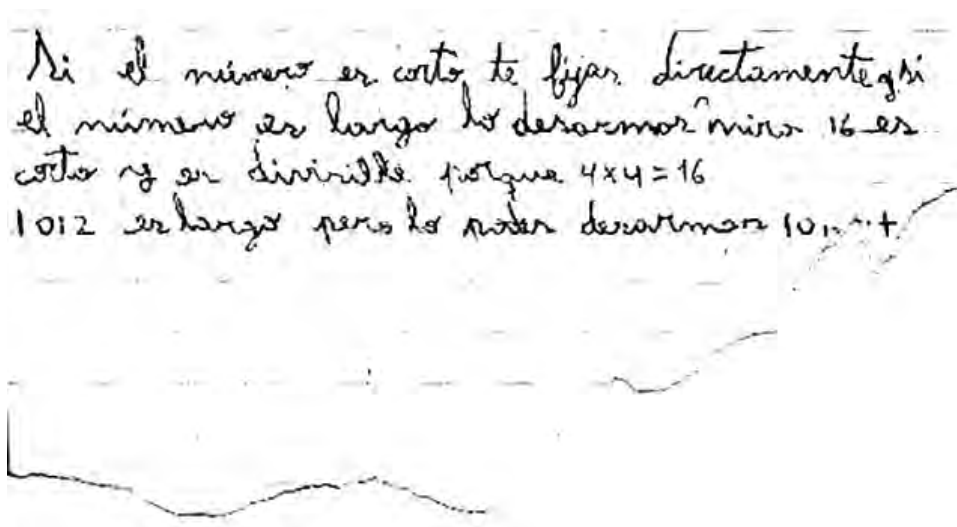 Si el número es corto te fijas directamente y si
el número es largo lo desarmas mira 16 es
corto y es divisible porque 4x4=16
1012 es largo pero lo podes desarmar